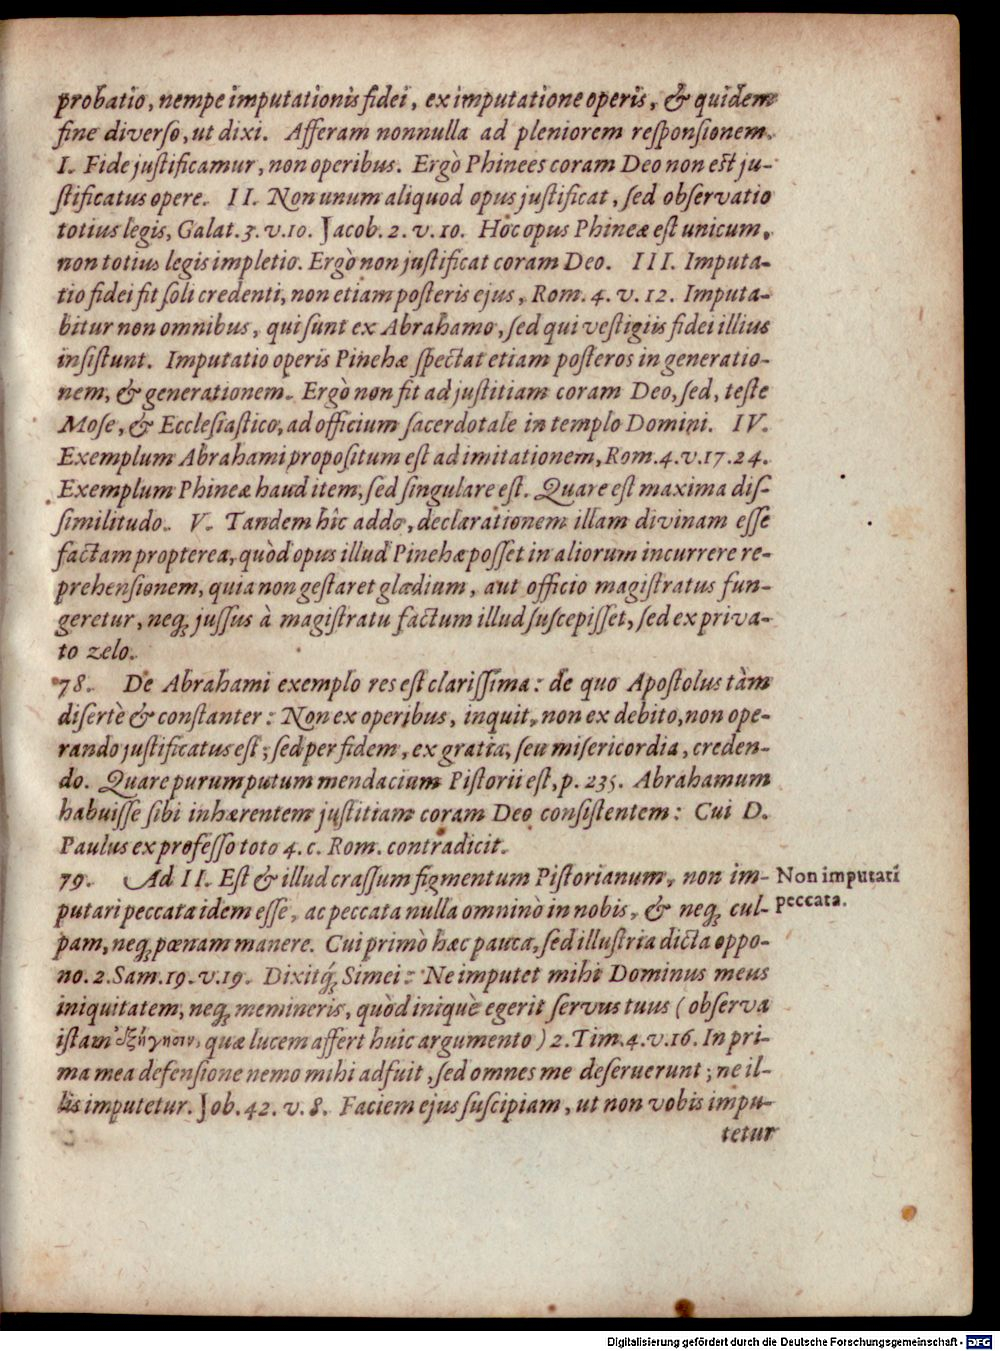 probatio, nempe imputationis fidei, ex imputatione operis, & quidem
fine diverso, ut dixi. Afferam nonnulla ad pleniorem responsionem.
I. Fide justificamur, non operibus. Ergò Phinees coram Deo non est ju-
stificatus opere. II. Non unum aliquod opus justificat, sed observatio
totius legis, Galat. 3. v. 10. Jacob. 2. v. 10. Hoc opus Phineæ est unicum,
non totius legis impletio. Ergò non justificat coram Deo. III. Imputa-
tio fidei fit soli credenti, non etiam posteris ejus, Rom. 4. v. 12. Imputa-
bitur non omnibus, qui sunt ex Abrahamo, sed qui vestigiis fidei illius
insistunt. Imputatio operis Pinehæ spectat etiam posteros in generatio-
nem, & generationem. Ergò non fit ad justitiam coram Deo, sed, teste
Mose, & Ecclesiastico, ad officium sacerdotale in templo Domini. IV.
Exemplum Abrahami propositum est ad imitationem, Rom. 4. v. 17. 24.
Exemplum Phineæ haud item, sed singulare est. Quare est maxima dis-
similitudo. V. Tandem hîc addo, declarationem illam divinam esse
factam propterea, quòd opus illud Pinehæ posset in aliorum incurrere re-
prehensionem, quia non gestaret glædium, aut officio magistratus fun-
geretur, neq; jussus à magistratu factum illud suscepisset, sed ex priva-
to zelo.
78. De Abrahami exemplo res est clarissima: de quo Apostolus tàm
disertè & constanter: Non ex operibus, inquit, non ex debito, non ope-
rando justificatus est; sed per fidem, ex gratia, seu misericordia, creden-
do. Quare purum putum mendacium Pistorii est, p. 235. Abrahamum
habuisse sibi inhærentem justitiam coram Deo consistentem: Cui D.
Paulus ex professo toto 4. c. Rom. contradicit.
79. Ad II. Est & illud crassum figmentum Pistorianum, non im-
putari peccata idem esse, ac peccata nulla omninò in nobis, & neq; cul-
pam, neq; pœnam manere. Cui primò hæc pauca, sed illustria dicta oppo-
no. 2. Sam. 19. v. 19. Dixitq; Simei: Ne imputet mihi Dominus meus
iniquitatem, neq; memineris, quòd iniquè egerit servus tuus (observa
istam ἐξήγησιν, quæ lucem affert huic argumento) 2. Tim. 4. v. 16. In pri-
ma mea defensione nemo mihi adfuit, sed omnes me deseruerunt; ne il-
lis imputetur. Job. 42. v. 8. Faciem ejus suscipiam, ut non vobis impu-
tetur
Non imputari
peccata.
Digitalisierung gefördert durch die Deutsche Forschungsgemeinschaft - DFG